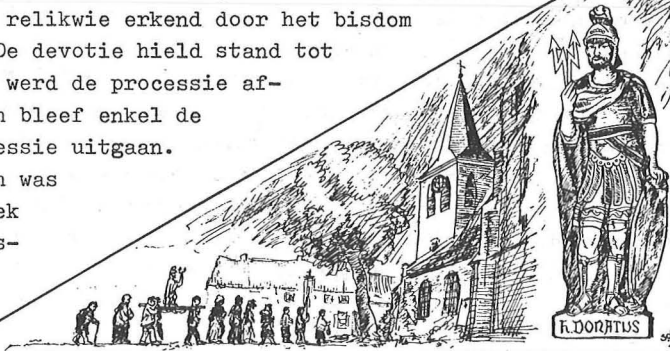 relikwie erkend door het bisdom
De devotie hield stand tot
werd de processie af-
bleef enkel de
essie uitgaan.
was
ek
s-
H. DONATUS